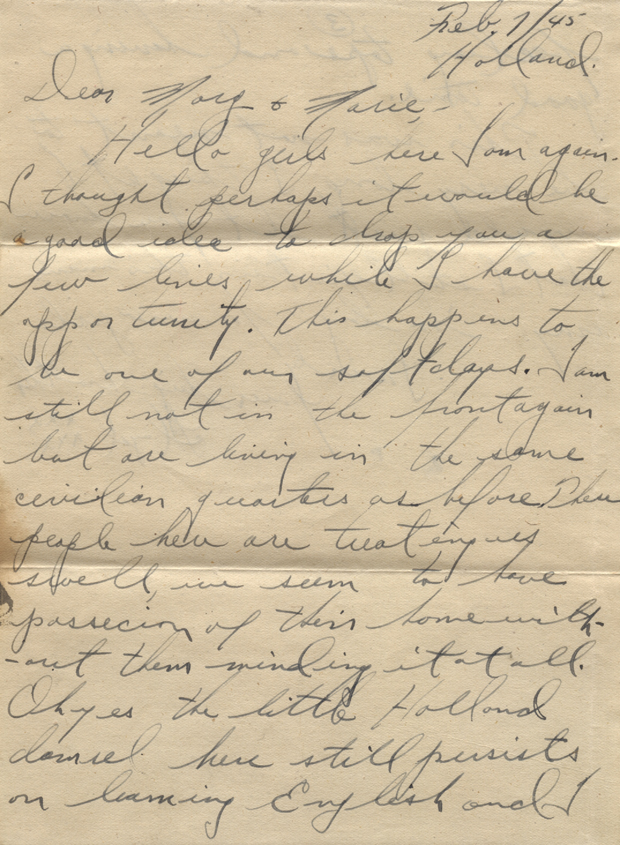 Feb. 7/45
Holland.
Dear Mary & Marie,-
Hello girls here I am again.
I thought perhaps it would be
a good idea to drop you a
few lines while I have the
opportunity. This happens to
be one of our soft days. I am
still not in the front again
but are living in the same
civilian quarters as before. These
people here are treating us
swell, we seem to have
possecion of their home with-
-out them minding it at all.
Oh yes the little Holland
damsel here still persists
on learning English and I